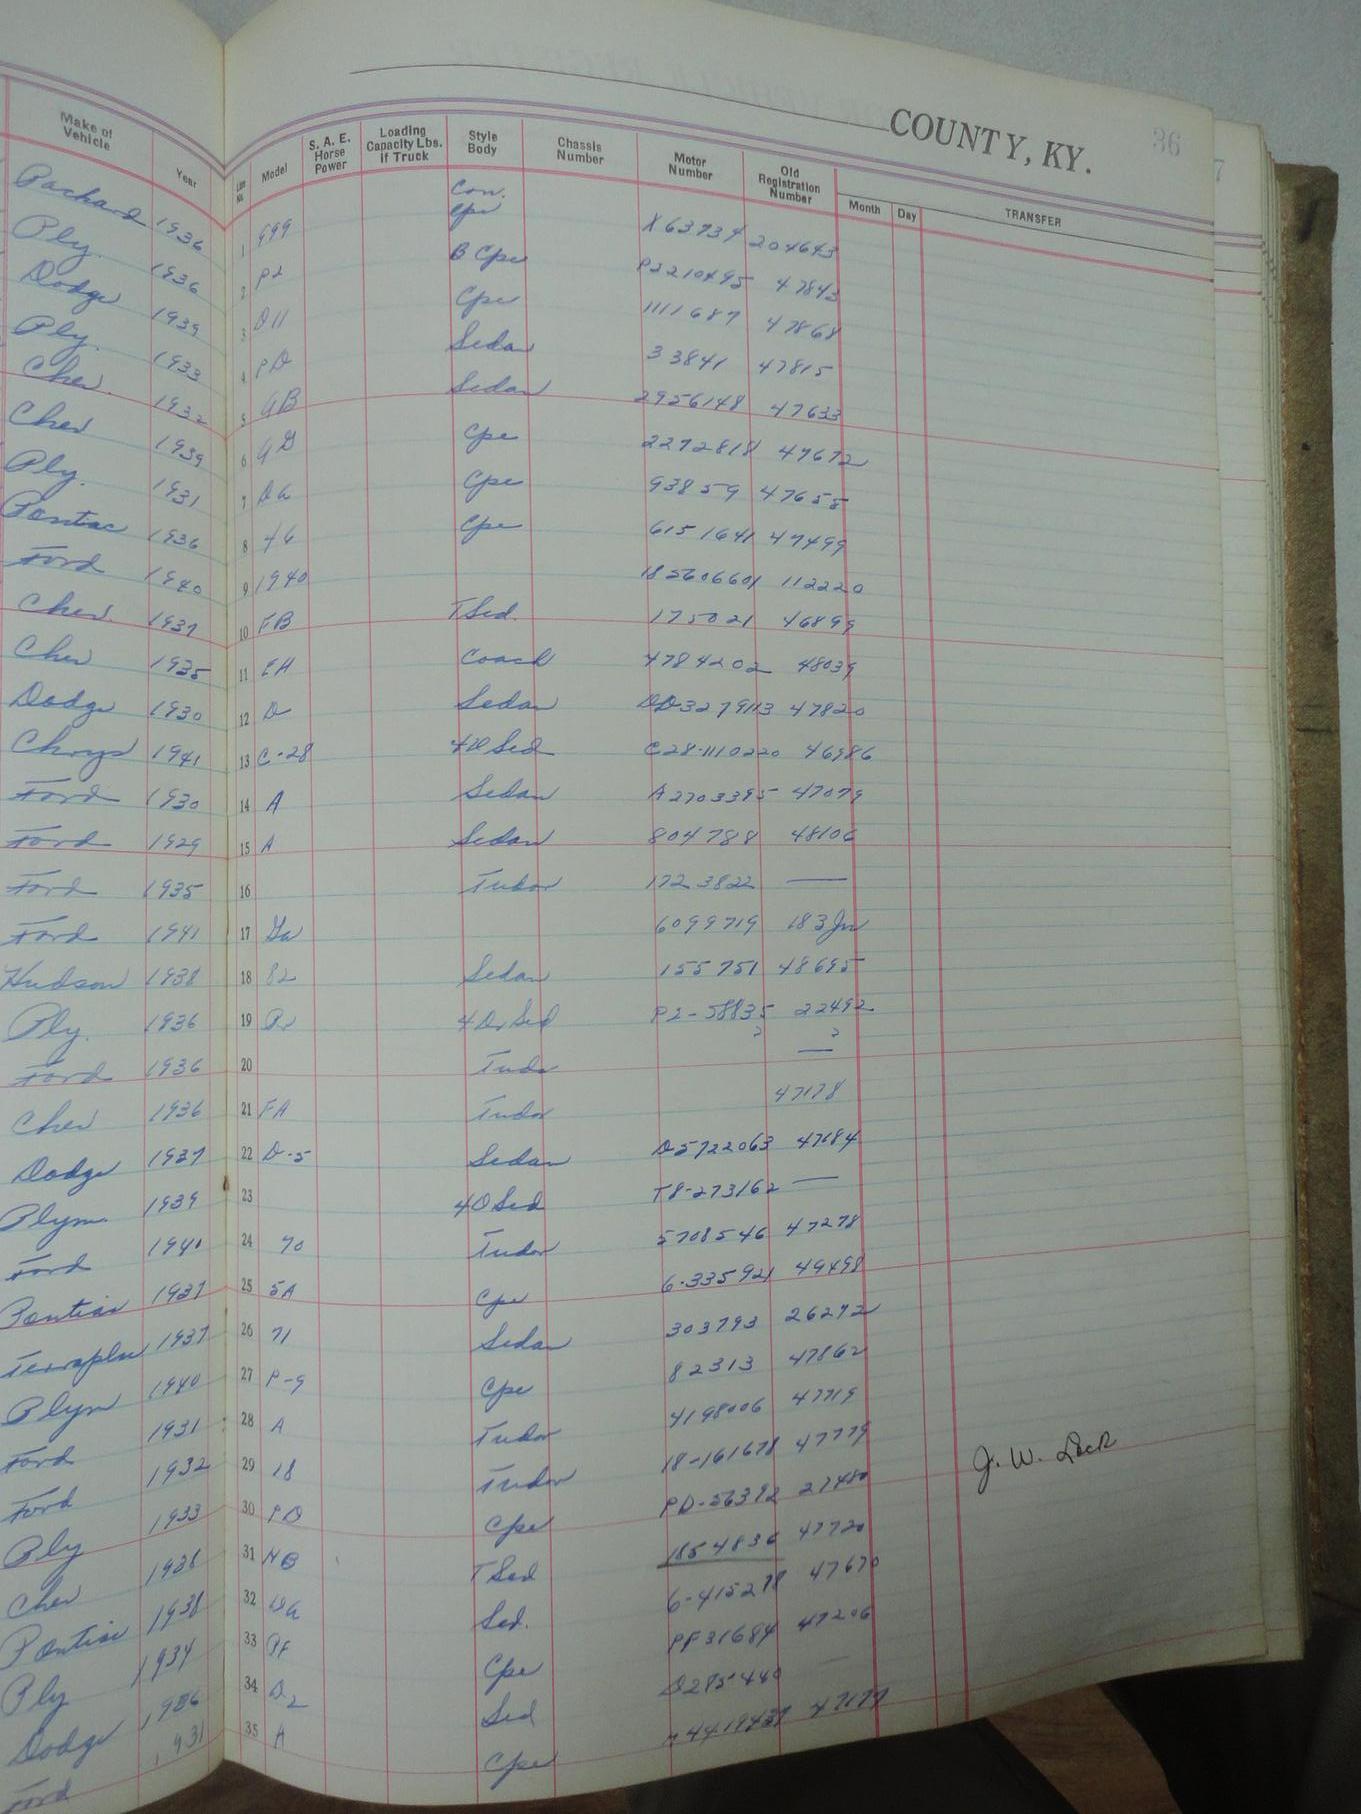 COUNTY, KY. 36
Make of Vehicle Year Line No. Model S. A. E. Horse Power Loading Capacity Lbs. if Truck Style Body Chassis Number Motor Number Old Registration Number Month Day TRANSFER
Packard 1936 1 999 Con. Cpe X63734 204643
Ply. 1936 2 P2 B Cpe P2210495 47843
Dodge 1939 3 D11 Cpe 1111687 47868
Ply. 1933 4 PD Sedan 33841 47815
Chev. 1932 5 Sedan 2956148 47633
Chev 1939 6 Cpe 2272818 47672
Ply. 1931 7 Cpe 93859 47655
Pontiac 1936 8 Cpe 6151641 47499
Ford 1940 9 1940 185606601 112220
Chev. 1937 10 FB TSed. 175021 46899
Chev 1935 11 EA Coach 4784202 48039
Dodge 1930 12 D Sedan 47820
Chrys 1941 13 C-28 4D Sed C28-1110220 46986
Ford 1930 14 A Sedan A2703395 47079
Ford 1929 15 A Sedan 804788 48106
Ford 1935 16 Tudor 1723822 —
Ford 1941 17 6099719
Hudson 1938 18 82 Sedan 155751 48695
Ply. 1936 19 4 Dr Sed P2-58835 ? 22492 ?
Ford 1936 20 Tudor —
Chev 1936 21 FA Tudor 47178
Dodge 1937 22 D-5 Sedan D5722063 47184
Plym. 1939 23 4D Sed T8-273162 —
Ford 1940 24 70 Tudor 5708546 47278
Pontiac 1937 25 Cpe 6-335921 49498
Terraplane 1937 26 71 Sedan 303793 26272
Plym 1940 27 P-9 Cpe 82313 47862
Ford 1931 28 A Tudor 4198006 47719
Ford 1932 29 18 Tudor 18-161678 47779 J. W. Lack
Ply 1933 30 PD Cpe PD-56392 27480
Chev 1938 31 HB T Sed 1854836 47720
Pontiac 1938 32 Sed. 6-415278 47670
Ply 1934 33 PF Cpe PF31684 47206
Dodge 1936 34 D2 Sed D285440 —
Ford 1931 35 A Cpe 47177